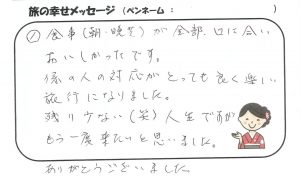 旅の幸せメッセージ (ペンネーム: )
① 食事(朝・晩共)が全部、口に合い
おいしかったです。
係の人の対応がとっても良く楽しい
旅行になりました。
残り少ない(笑)人生ですが
もう一度来たいと思いました。
ありがとうございました。